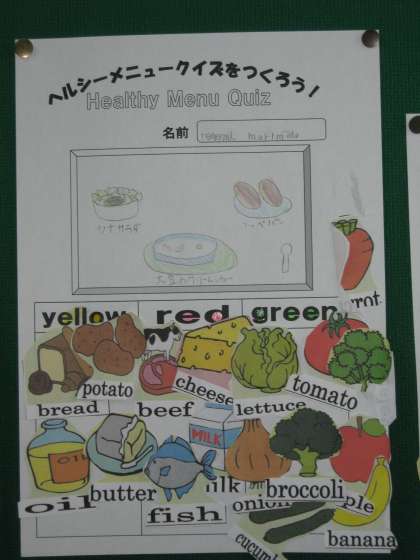 ヘルシーメニュークイズをつくろう！
Healthy Menu Quiz
名前
ツナサラダ
yellow red green
rrot
potato cheese tomato
bread beef lettuce
MILK
OIL
oil butter ilk onion broccoli ple
fish banana
cucumb